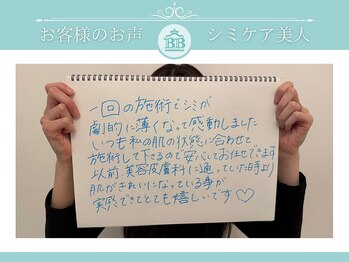 お客様のお声
BB
シミケア美人
一回の施術でシミが
劇的に薄くなって感動しました
いつも私の肌の状態に合わせて
施術して下さるので安心してお任せできます
以前、美容皮膚科に通っていた時より
肌がきれいになっている事が
実感できてとても嬉しいです♡